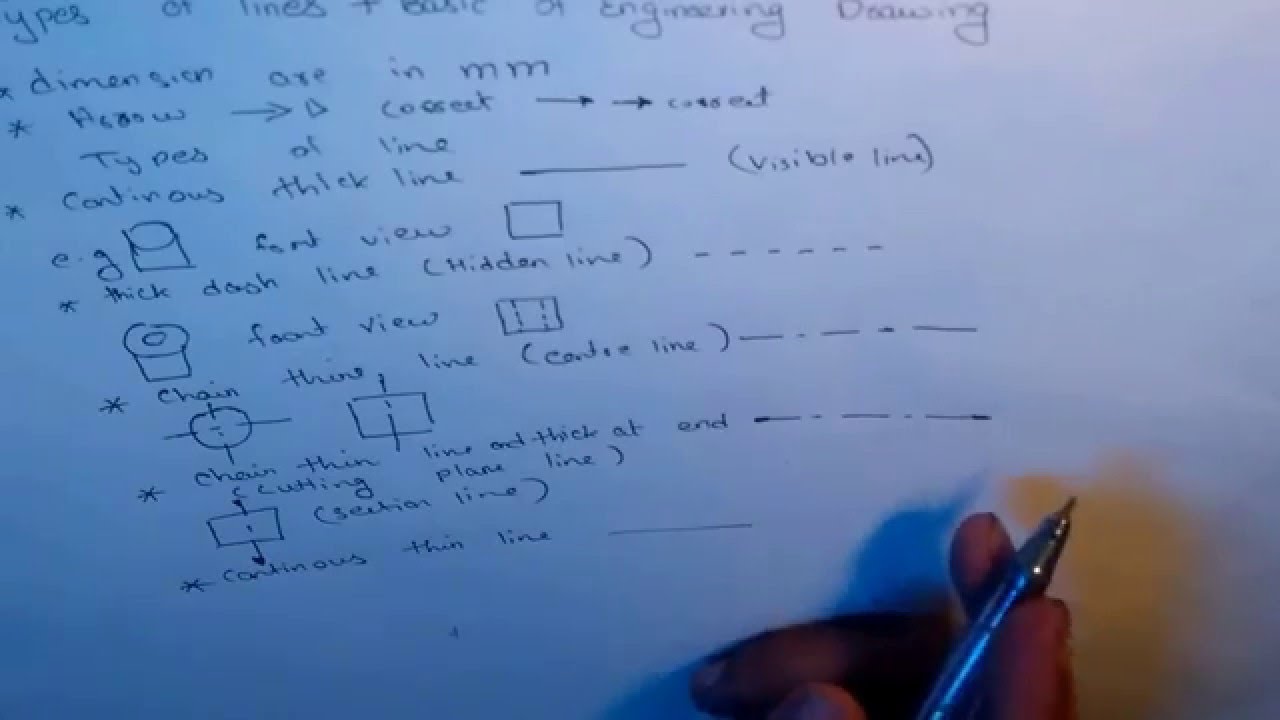 ypes of lines + Basic of Engineering Drawing
* dimension are in mm
* Arrow correct correct
Types of line
* Continous thick line (visible line)
e.g font view
* thick dash line (Hidden line)
front view
* chain thin line (centre line)
* chain thin line and thick at end
(cutting plane line)
(section line)
* continous thin line